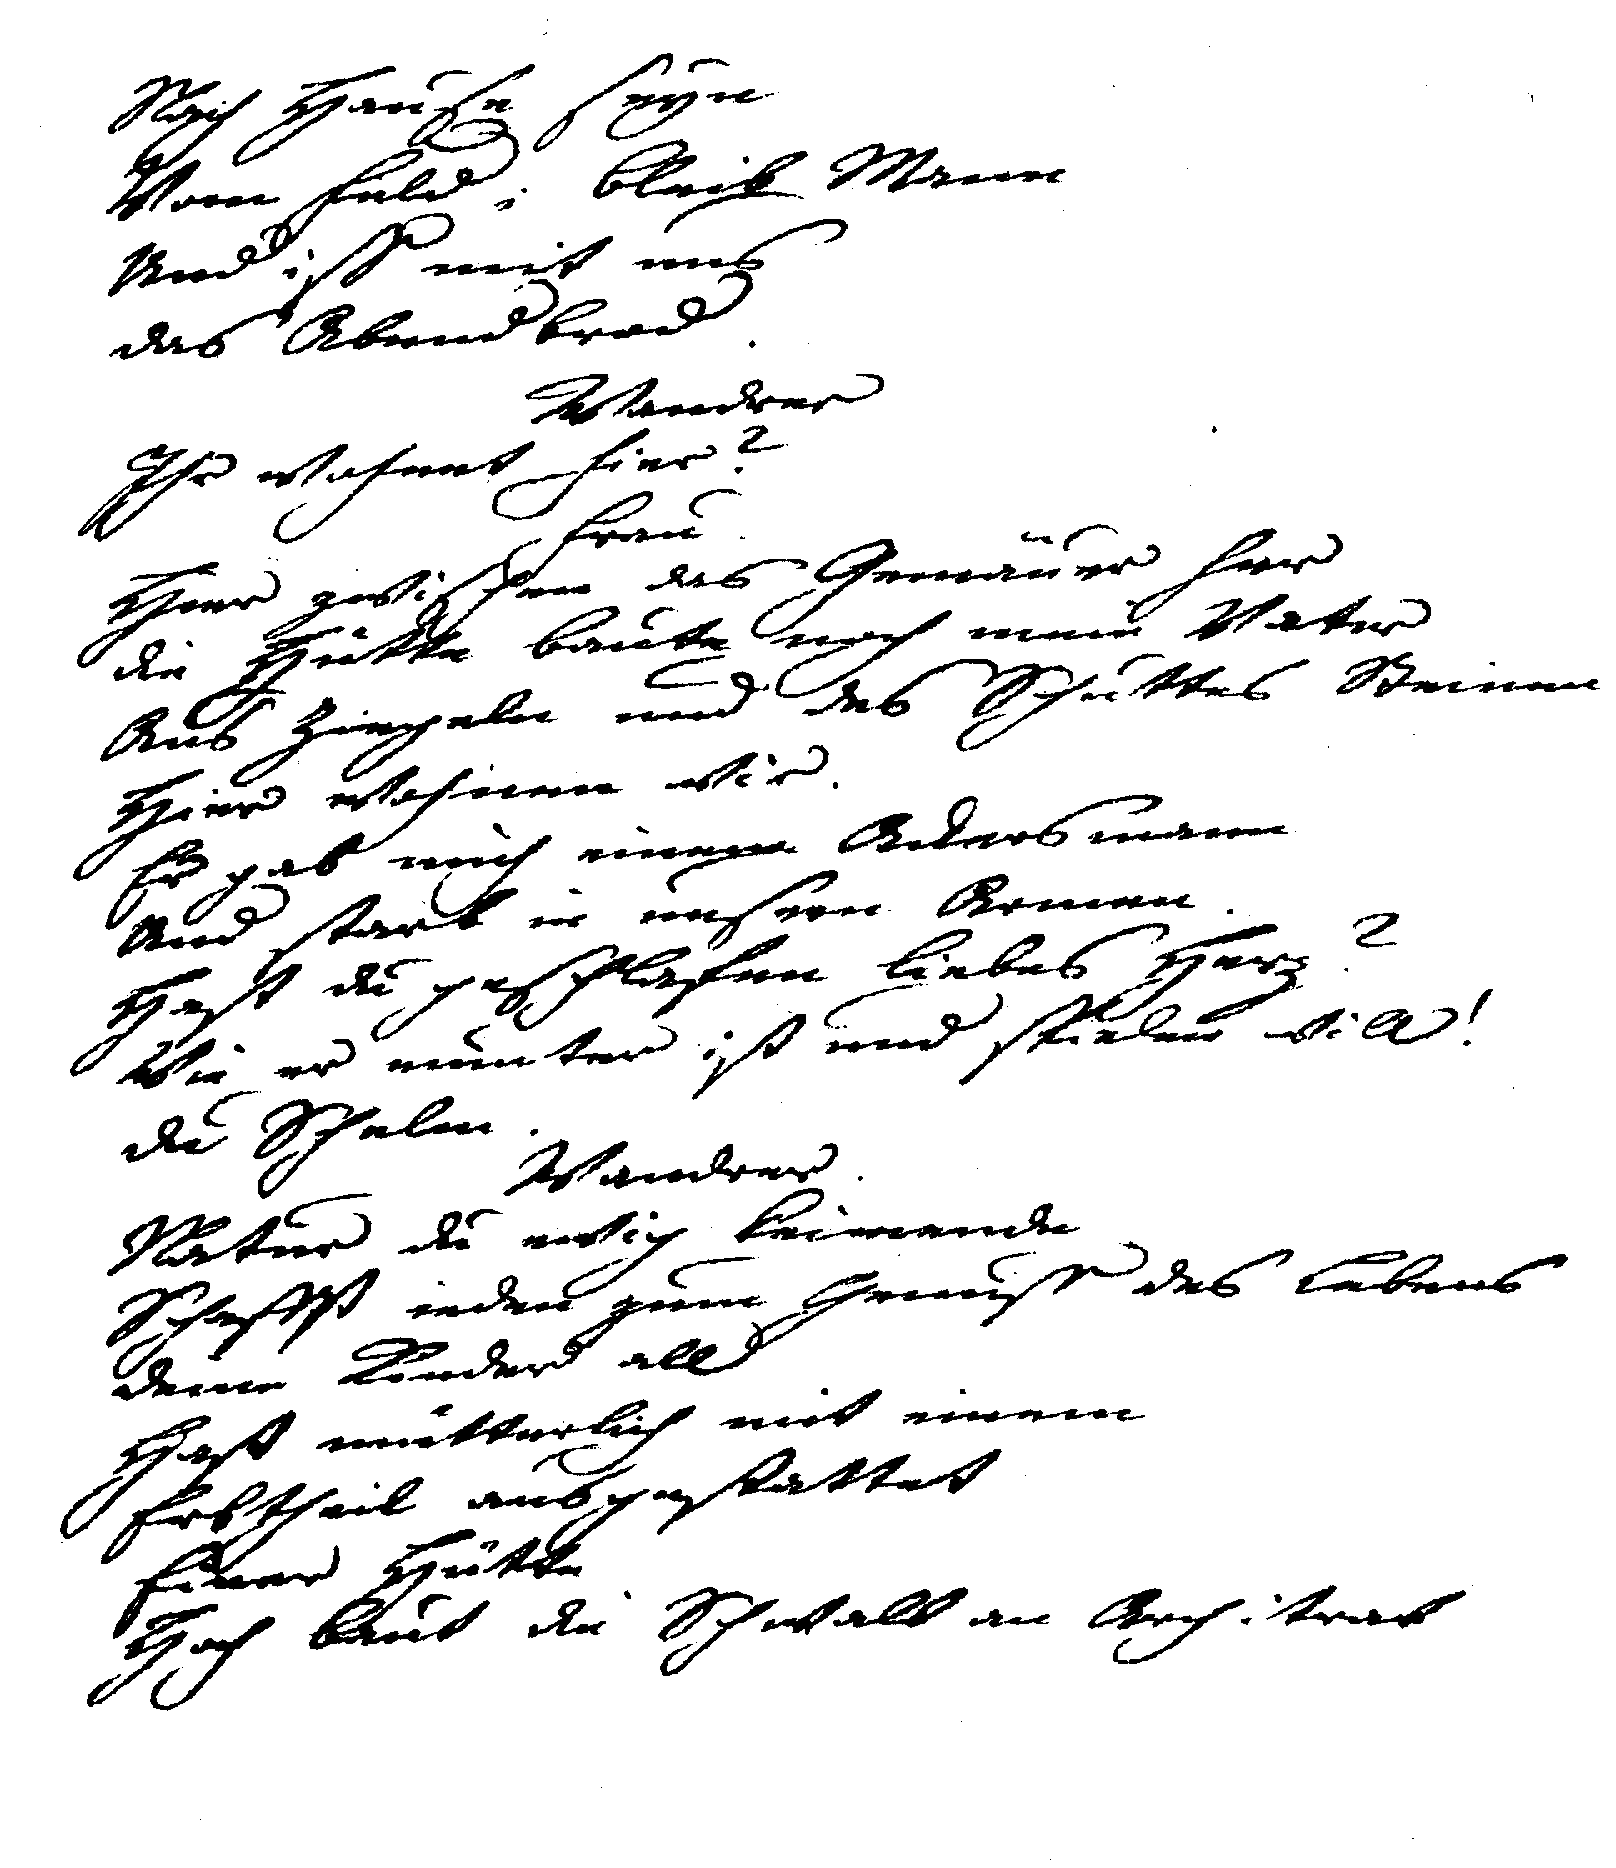 Nach Hause seyn
Vom Feld, bleib Mann
Und iss mit uns
das Abendbrod.
Wandrer
Ihr wohnet hier?
Frau.
Hier zwischen das Gemäuer her
die Hütte baute noch mein Vater
Aus Ziegeln und des Schuttes Steinen
Hier wohnen wir.
Er gab mich einem Ackersmann
Und starb in unsern Armen.
Hast du geschlafen liebes Herz?
Wie er munter ist und spielen will!
du Schelm.
Wandrer.
Natur du ewig keimende
Schaffst ieden zum Genuss des Lebens
deine Kinder all
Hast mütterlich mit einem
Erbtheil ausgestattet
Einer Hütte
Hoch baut die Schwalb an Architrab